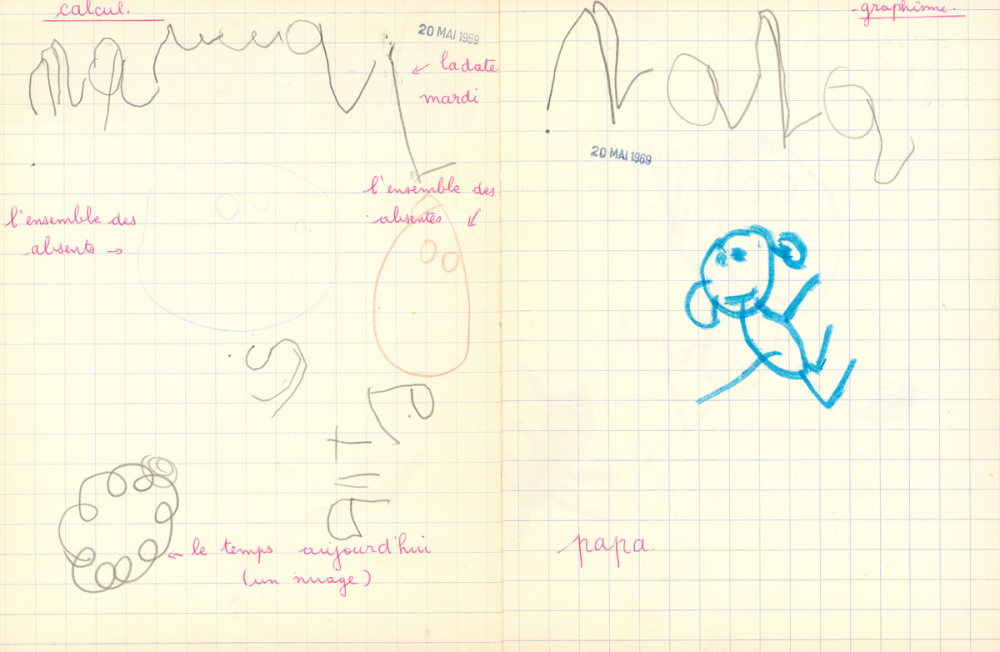 calcul.
20 MAI 1969
la date
mardi
l'ensemble des
absentes
l'ensemble des
absents
le temps aujourd'hui
(un nuage)
graphisme.
20 MAI 1969
papa.